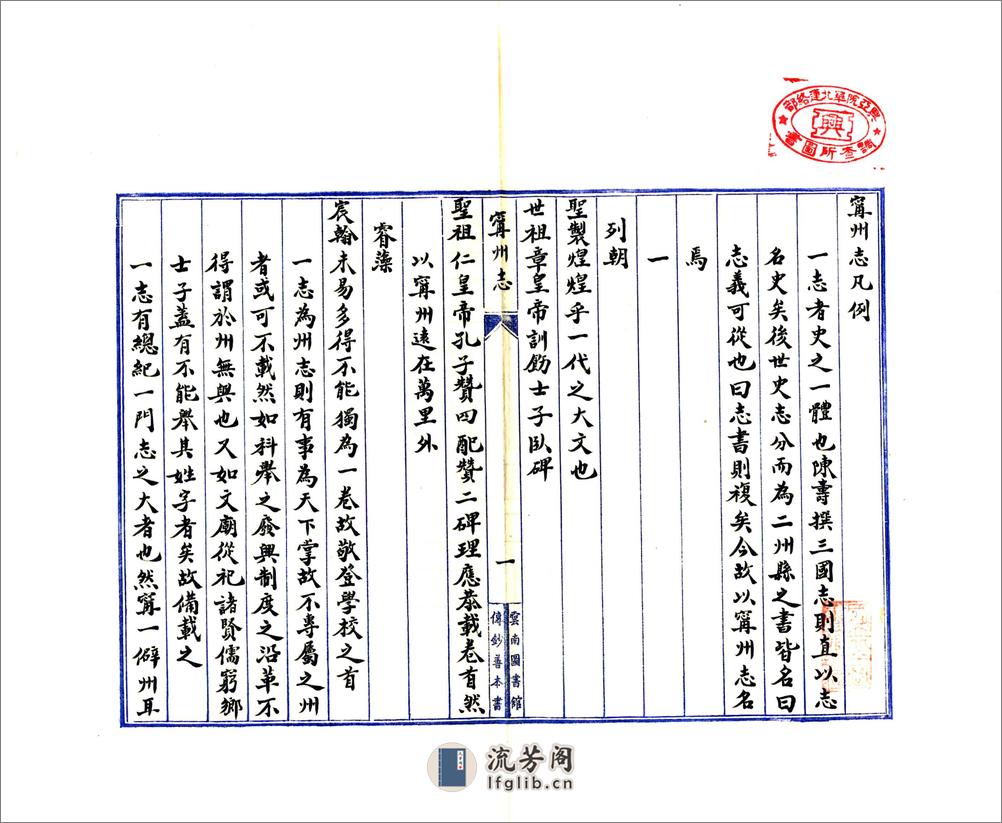 甯州志凡例
一志者史之一體也陳壽撰三國志則直以志
名史矣後世史志分而為二州縣之書皆名曰
志義可從也曰志書則複矣今故以甯州志名
焉
一
列朝
聖製煌煌乎一代之大文也
世祖章皇帝訓飭士子臥碑
甯州志
一
雲南圖書館
傳鈔善本書
聖祖仁皇帝孔子贊四配贊二碑理應恭載卷首然
以甯州遠在萬里外
睿藻
宸翰未易多得不能獨為一卷故敬登學校之首
一志為州志則有事為天下掌故不專屬之州
者或可不載然如科舉之廢興制度之沿革不
得謂於州無與也又如文廟從祀諸賢儒窮鄉
士子蓋有不能舉其姓字者矣故備載之
一志有總紀一門志之大者也然甯一僻州耳
興亞院華北連絡部
興
調查所圖書
流芳阁
lfglib.cn